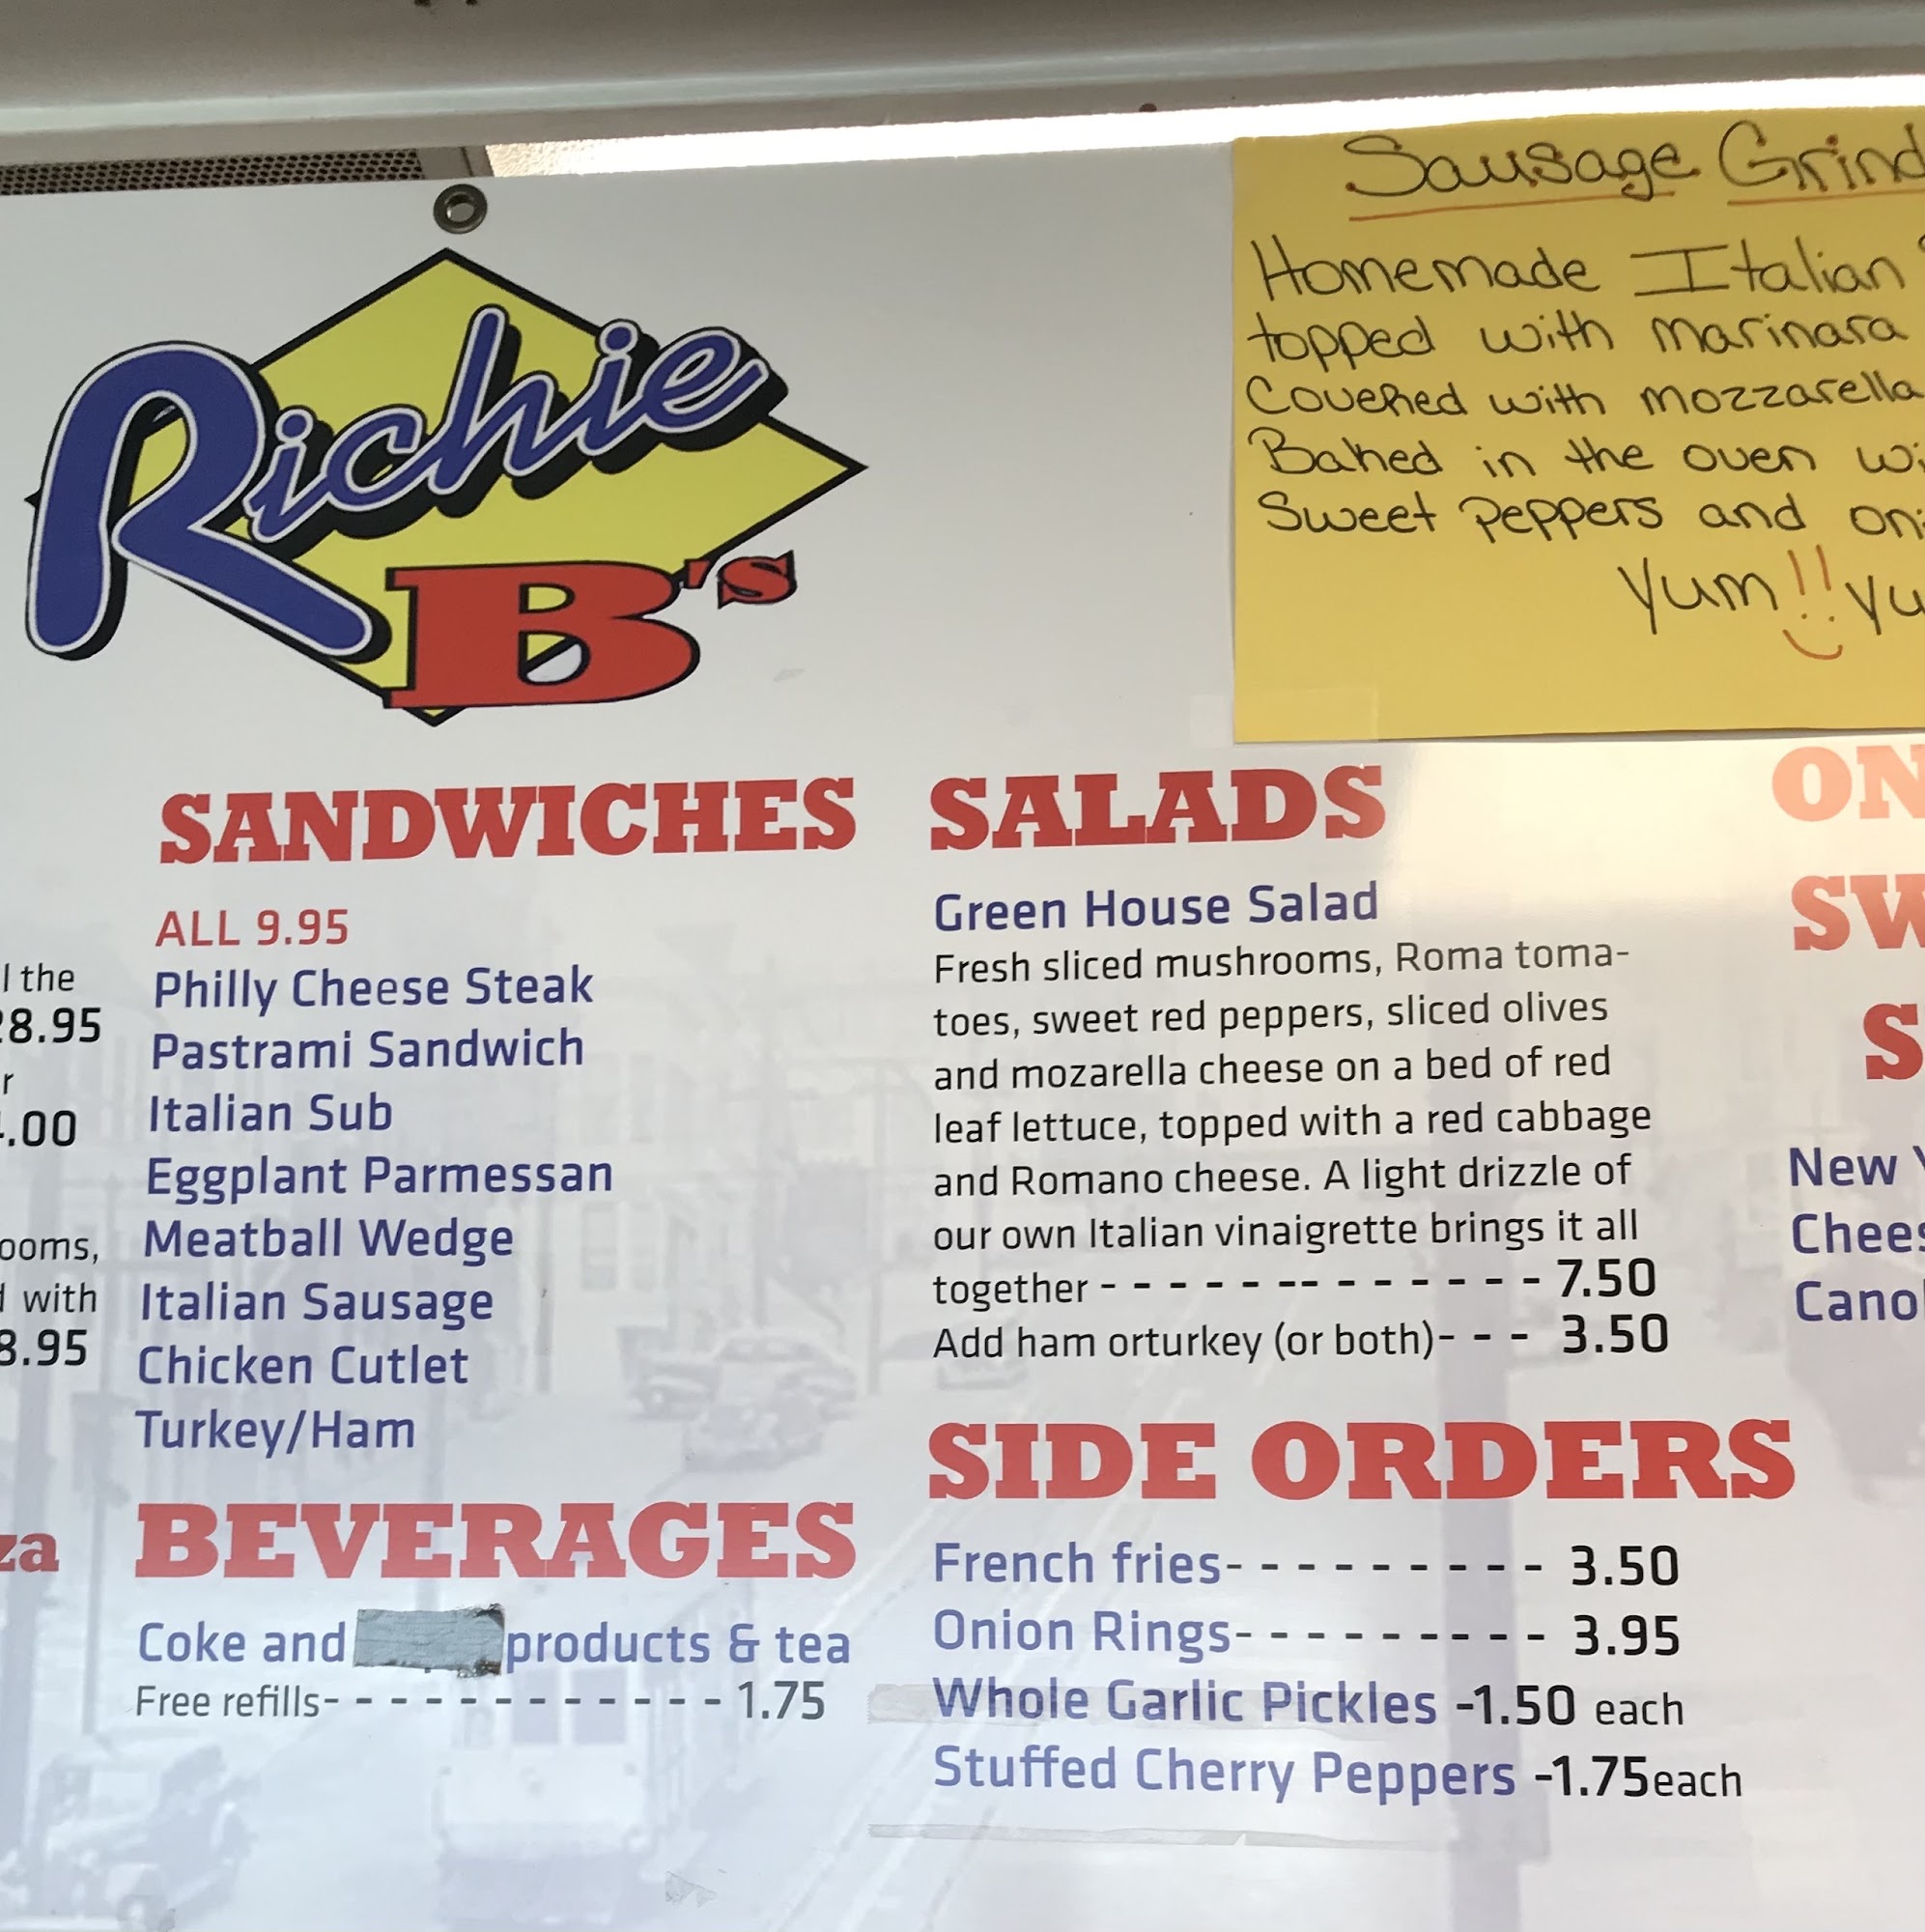 Richie
B's
Sausage
Homemade Italian
topped with marinara
Covered with mozzarella
Baked in the oven
Sweet Peppers and
Yum!!
SANDWICHES
ALL 9.95
Philly Cheese Steak
Pastrami Sandwich
Italian Sub
Eggplant Parmessan
Meatball Wedge
Italian Sausage
Chicken Cutlet
Turkey/Ham
BEVERAGES
Coke and products & tea
Free refills- - - - - - - - - - - - 1.75
SALADS
Green House Salad
Fresh sliced mushrooms, Roma toma-
toes, sweet red peppers, sliced olives
and mozarella cheese on a bed of red
leaf lettuce, topped with a red cabbage
and Romano cheese. A light drizzle of
our own Italian vinaigrette brings it all
together - - - - - - -- - - - - - - 7.50
Add ham orturkey (or both)- - - 3.50
SIDE ORDERS
French fries- - - - - - - - - - 3.50
Onion Rings- - - - - - - - - - 3.95
Whole Garlic Pickles -1.50 each
Stuffed Cherry Peppers -1.75each
the
8.95
.00
with
8.95
New